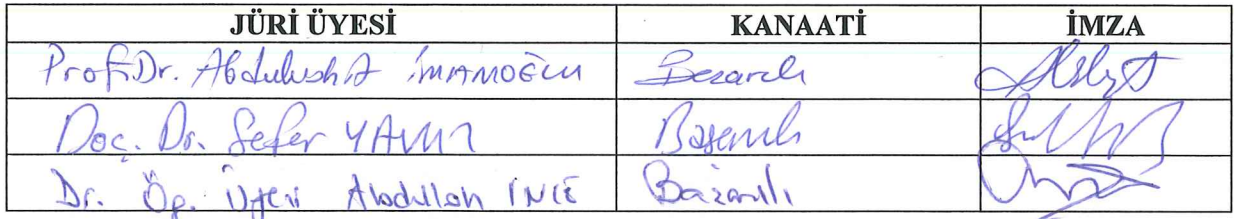 JÜRİ ÜYESİ KANAATİ İMZA
Prof. Dr. Abdulvahit İMAMOĞLU Başarılı
Doç. Dr. Sefer YAVUZ Başarılı
Dr. Öğ. Üyesi Abdullah İNCE Başarılı